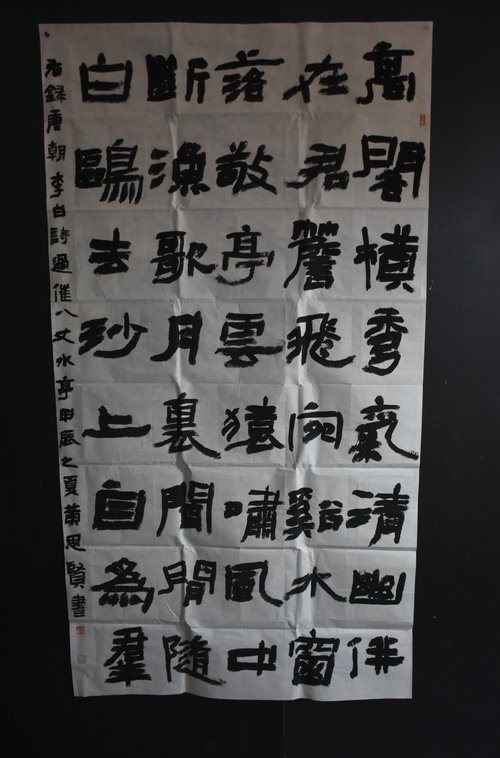 高閣橫秀氣清幽併
在君簷飛宛谿水窗
落敬亭雲猿嘯風中
斷漁歌月裏聞閒隨
白鷗去沙上自為羣
右録唐朝李白詩過催八丈水亭甲辰之夏黄思賢書